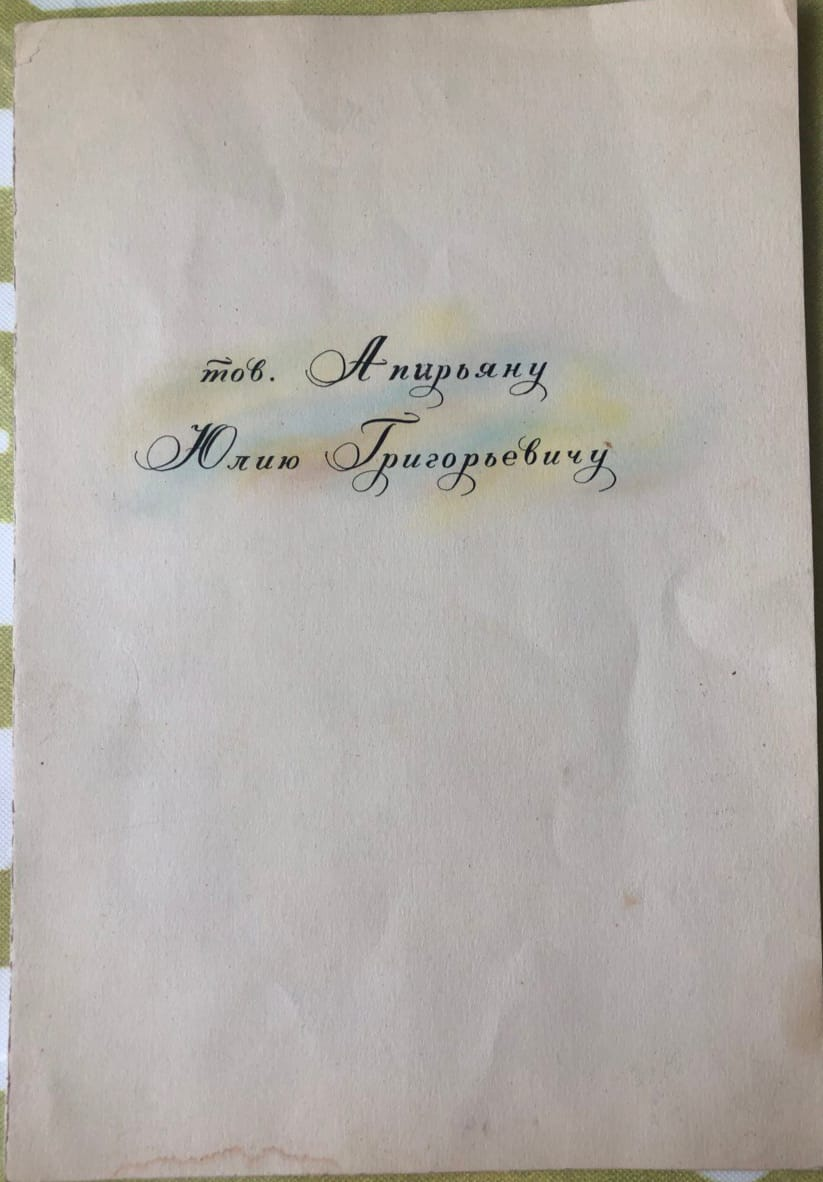 тов. Апирьяну
Юлию Григорьевичу